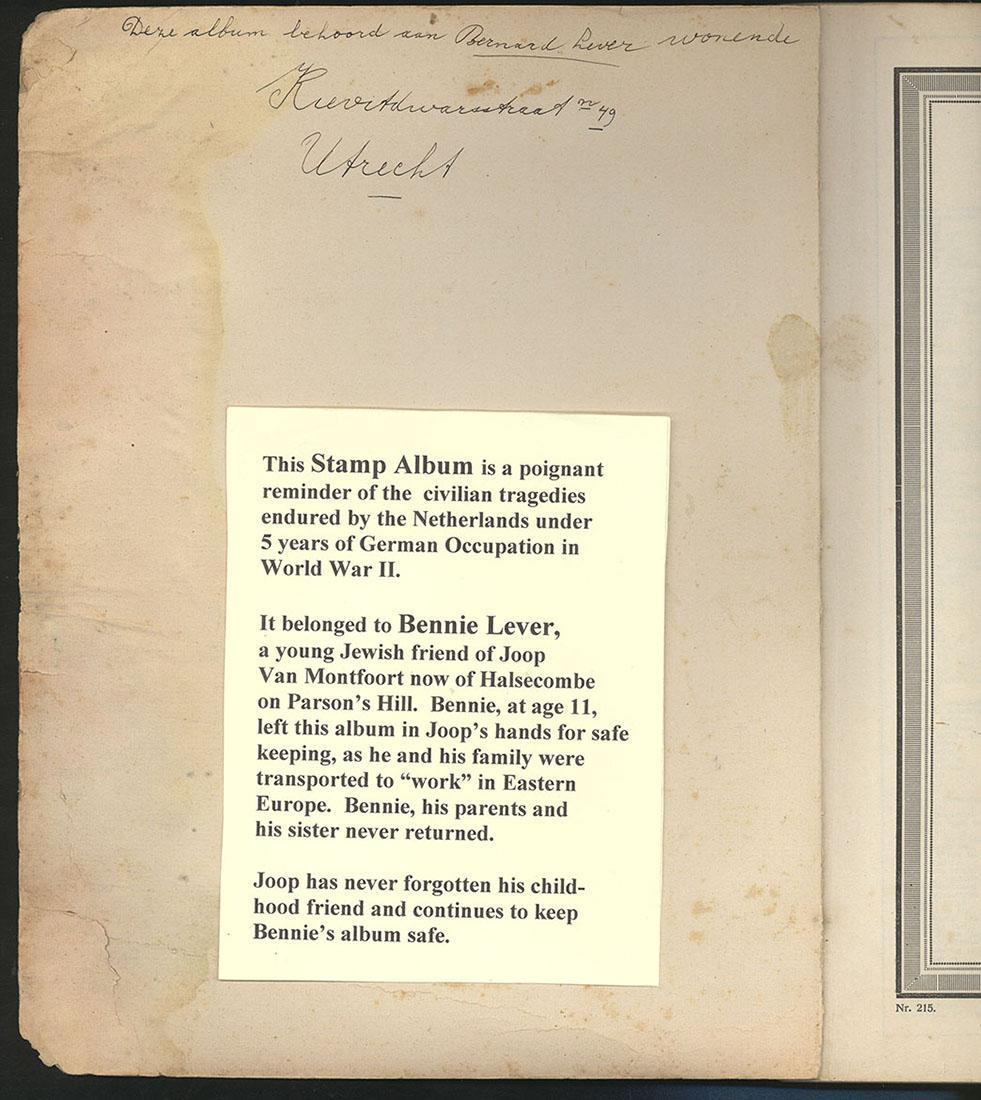 Deze album behoord aan Bernard Lever wonende
Kievitdwarsstraat no 49
Utrecht
This Stamp Album is a poignant
reminder of the civilian tragedies
endured by the Netherlands under
5 years of German Occupation in
World War II.
It belonged to Bennie Lever,
a young Jewish friend of Joop
Van Montfoort now of Halsecombe
on Parson's Hill. Bennie, at age 11,
left this album in Joop's hands for safe
keeping, as he and his family were
transported to “work” in Eastern
Europe. Bennie, his parents and
his sister never returned.
Joop has never forgotten his child-
hood friend and continues to keep
Bennie's album safe.
Nr. 215.